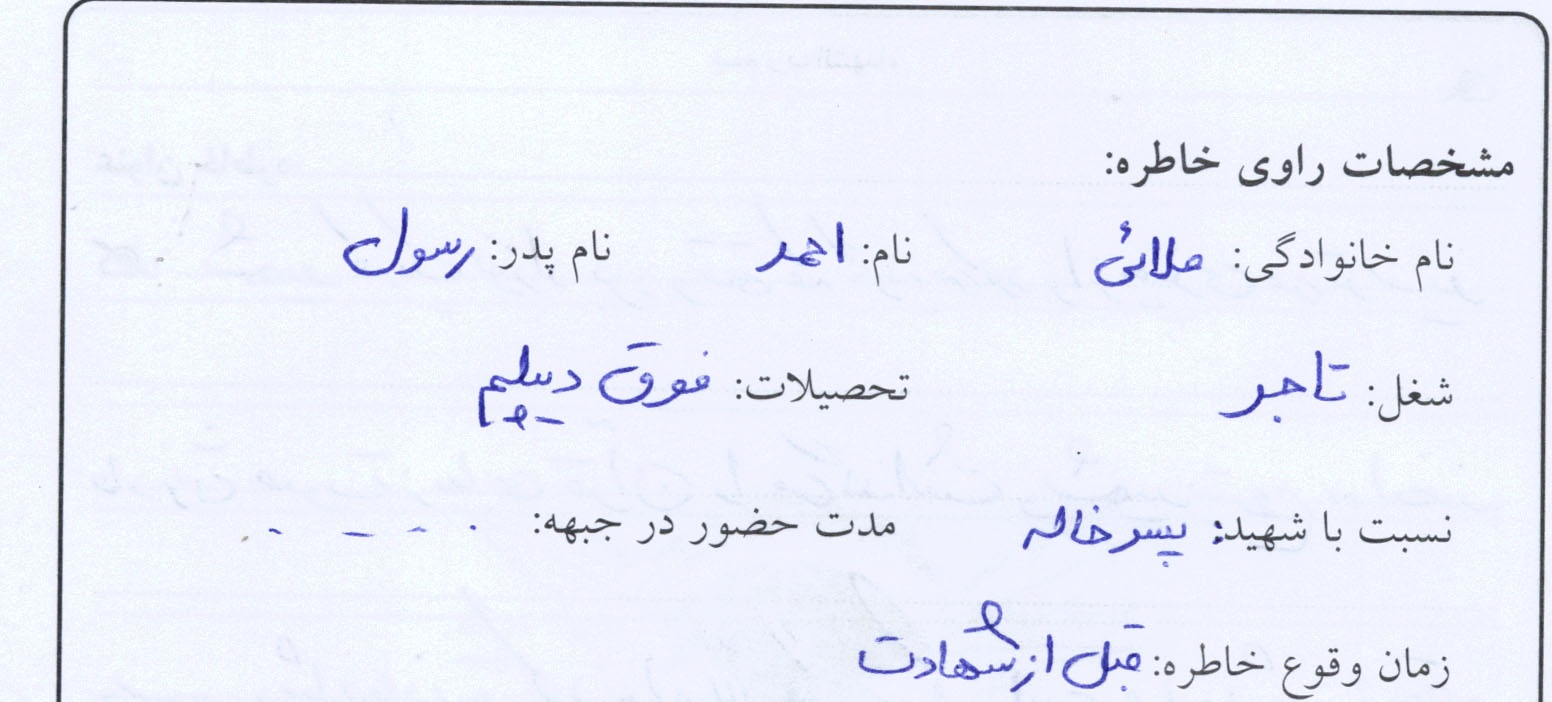 مشخصات راوی خاطره:
نام خانوادگی: ملائی نام: احمد نام پدر: رسول
شغل: تاجر تحصیلات: فوق دیپلم
نسبت با شهید: پسر خاله مدت حضور در جبهه: - - - -
زمان وقوع خاطره: قبل از شهادت